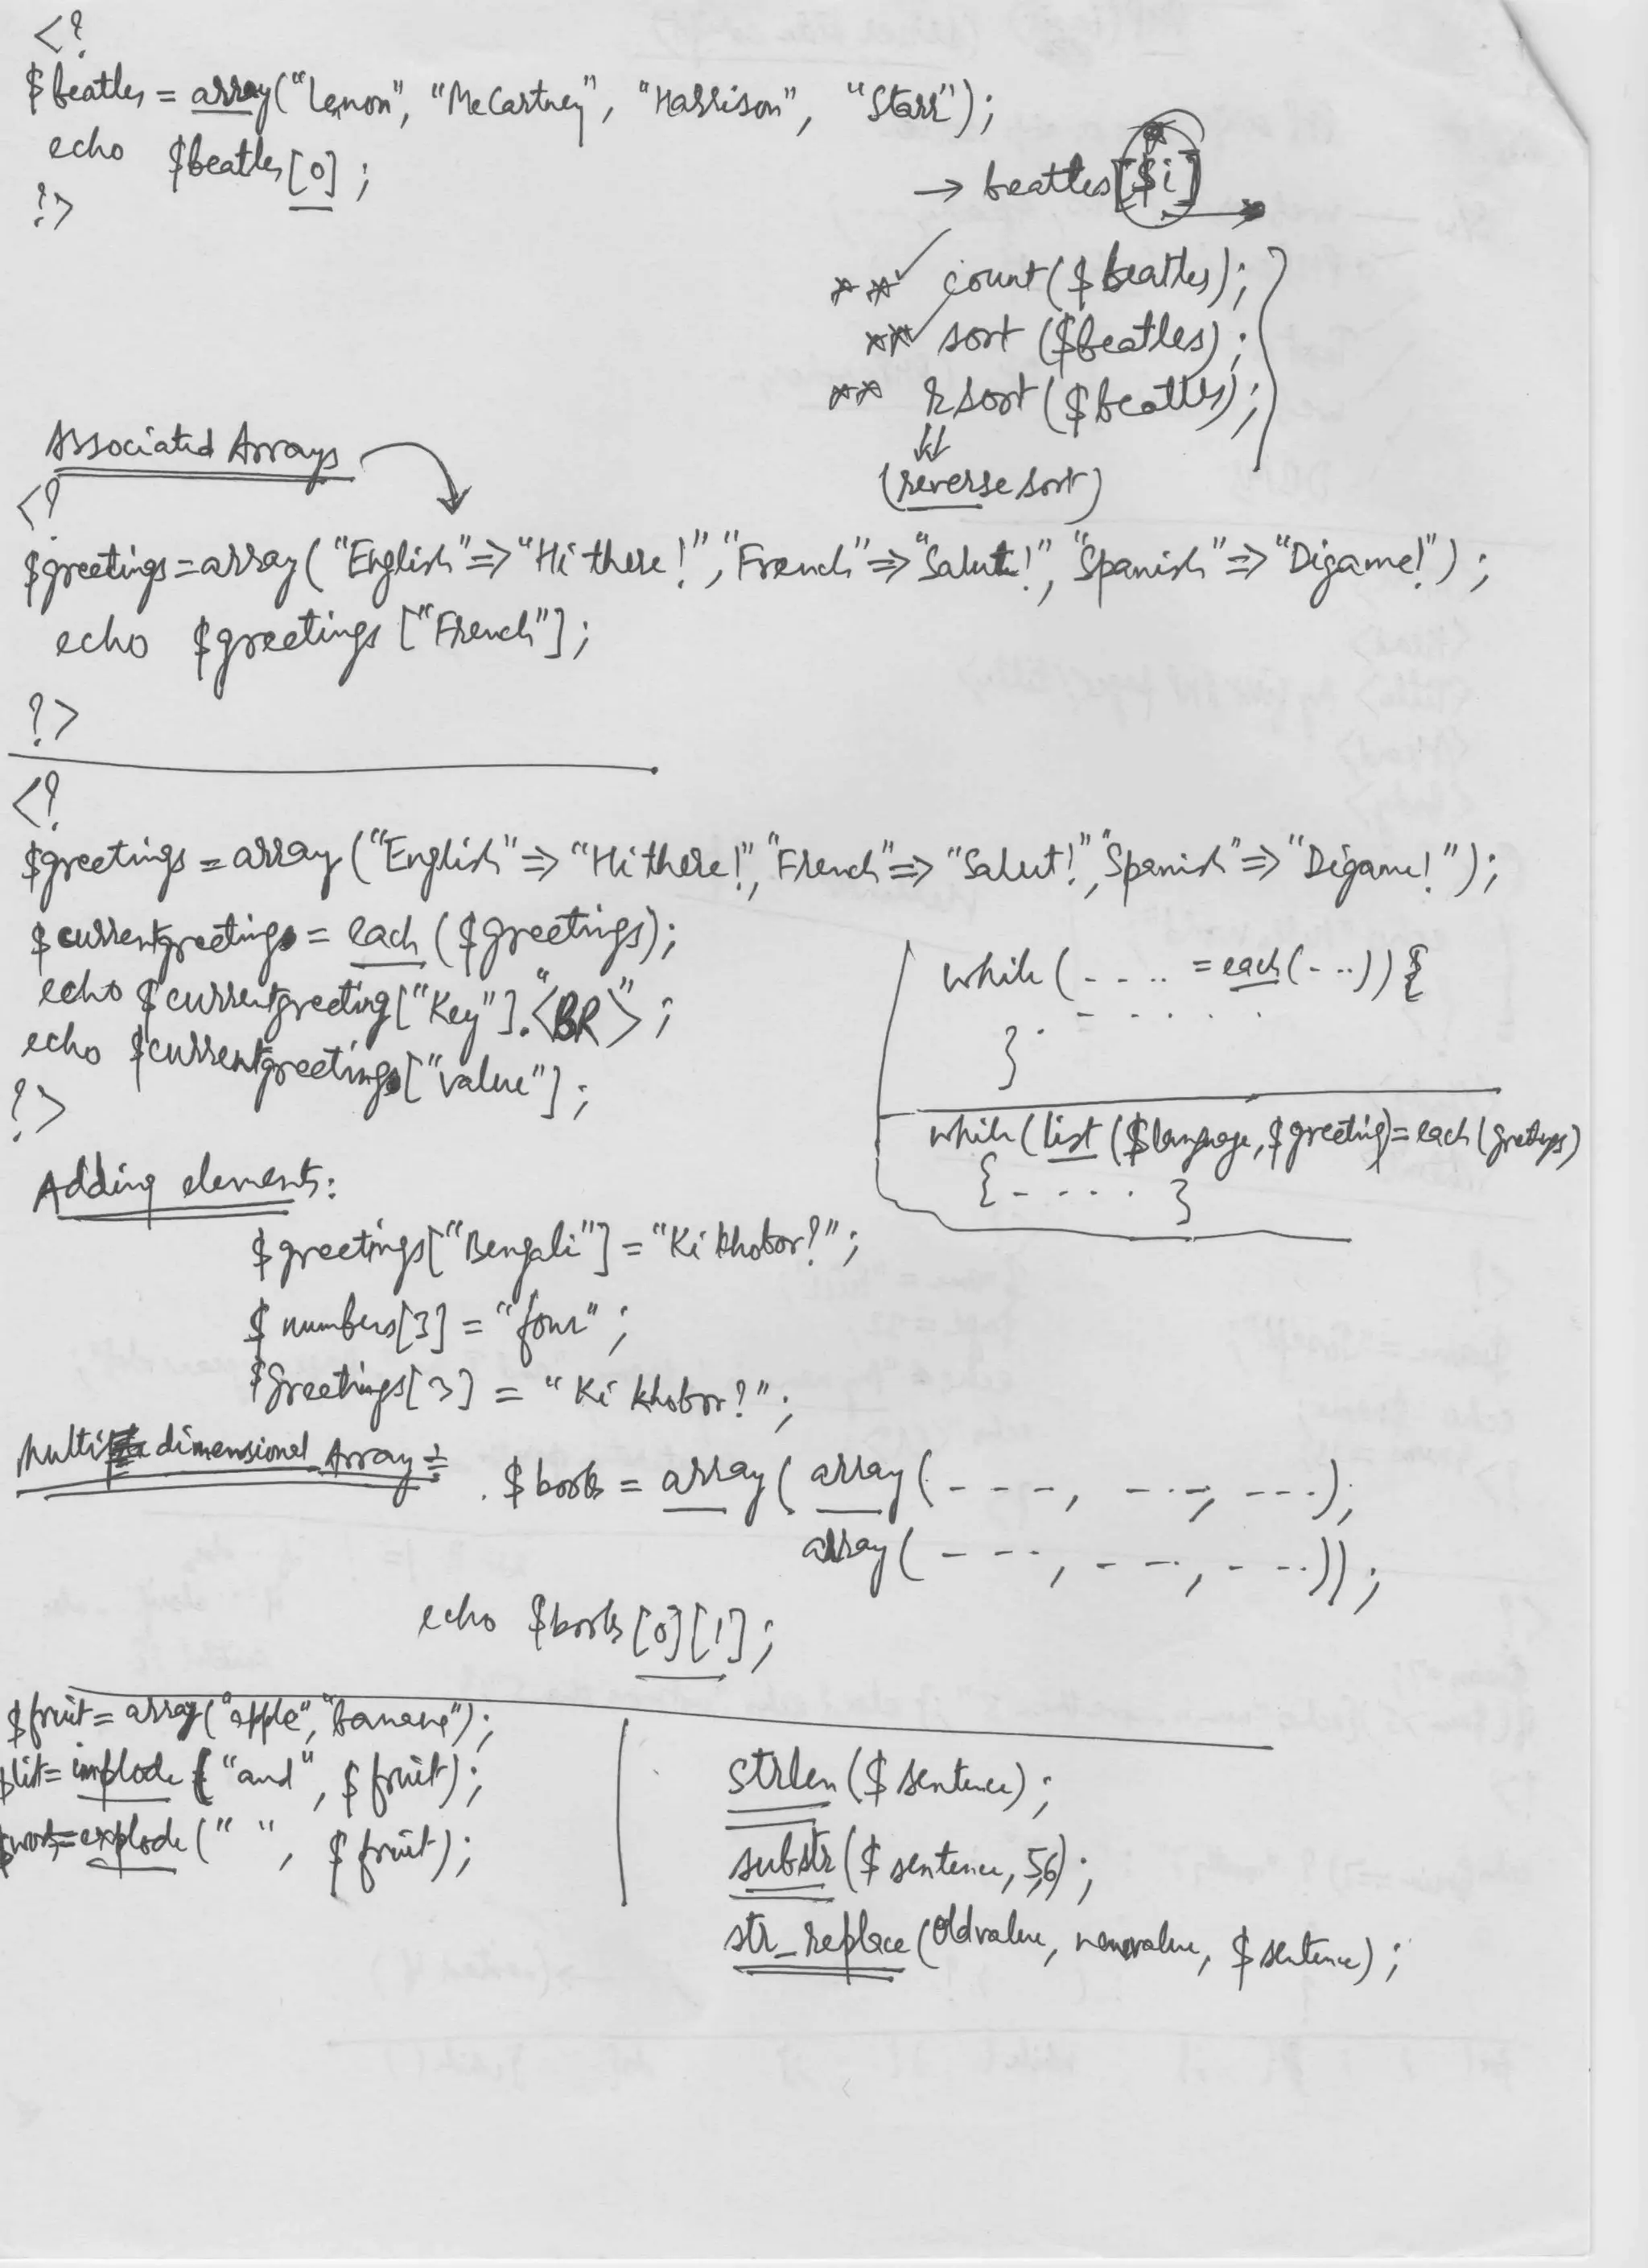 <?
$beatles = array("Lennon", "McCartney", "Harrison", "Starr");
echo $beatles[0];
?>
→ beatles[$i]
** ✓ count($beatles);
** ✓ sort ($beatles);
** rsort($beatles);
(reverse sort)
Associated Arrays
<?
$greetings=array("English"=>"Hi there!","French"=>"Salut!","Spanish"=>"Digame!");
echo $greetings["French"];
?>
<?
$greetings=array("English"=>"Hi there!","French"=>"Salut!","Spanish"=>"Digame!");
$currentgreeting = each ($greetings);
echo $currentgreeting["Key"]."<BR>";
echo $currentgreeting["value"];
?>
while(- - . . = each(- ..)) {
- - . . . .
}
while(list($language,$greeting)=each(greetings)
{- . . . . }
Adding elements:
$greetings["Bengali"]="Ki khobor?";
$numbers[3] = "four";
$greetings[3] = "Ki khobor?";
Multi dimensional Array:
$books = array( array(- - -, - - -, - - -),
array( - - -, - - -, - - -));
echo $books[0][1];
$fruit=array("apple","banana");
$list=implode("and", $fruit);
explode(" ", $fruit);
strlen($sentence);
substr($sentence,5,6);
str_replace(Oldvalue, newvalue, $sentence);